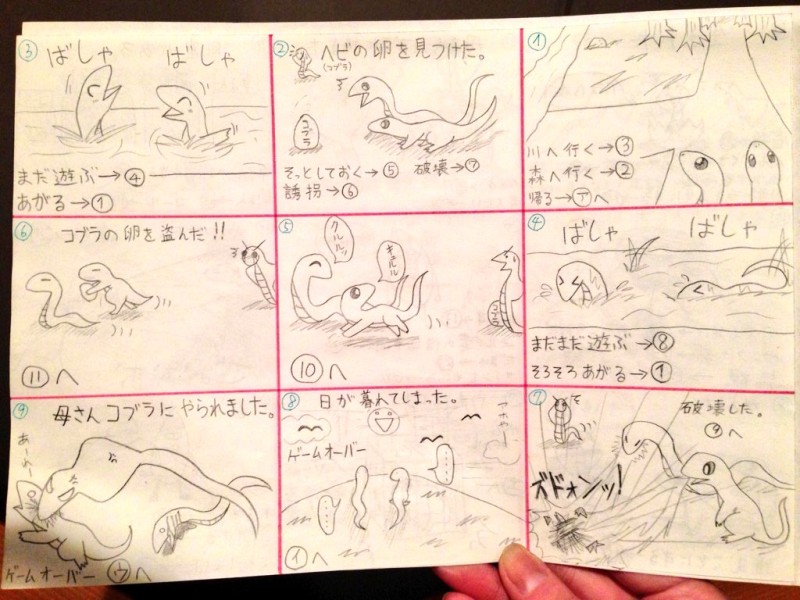 ①
川へ行く→③
森へ行く→②
帰る→㋐へ
②
ヘビの卵を見つけた。
(コブラ)
コブラ
そっとしておく→⑤ 破壊→⑦
誘拐→⑥
③
ばしゃ ばしゃ
まだ遊ぶ→④
あがる→①
④
ばしゃ ばしゃ
まだまだ遊ぶ→⑧
そろそろあがる→①
⑤
クルルッ
キュルル
コブラ
⑩へ
⑥
コブラの卵を盗んだ!!
⑪へ
⑦
破壊した。
⑨へ
ズドォンッ!
⑧
日が暮れてしまった。
アホやー
ゲームオーバー
‥‥
‥‥
㋑へ
⑨
母さんコブラにやられました。
あーれー
ゲームオーバー ㋒へ